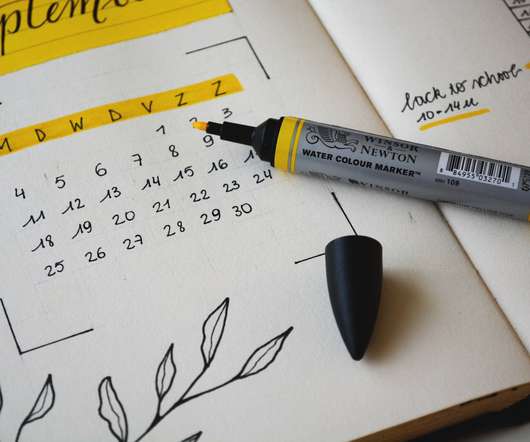 ptemb
M D W D V Z Z
1 2 3
4 5 6 7 8 9
11 12 13 14 15 16
18 19 20 21 22 23 24
25 26 27 28 29 30
back to school
10-14u
WINSOR
& NEWTON
WATER COLOUR MARKER™
8 84955 03270
108
WINSOR